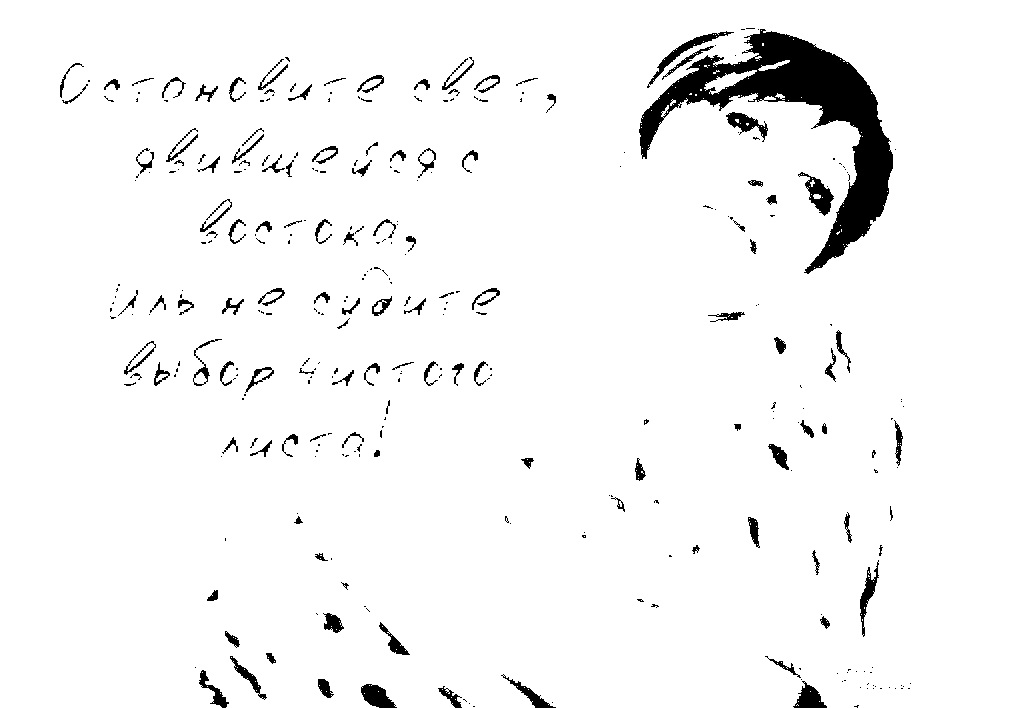 Остановите свет,
явившейся с
востока,
Иль не судите
выбор чистого
листа!